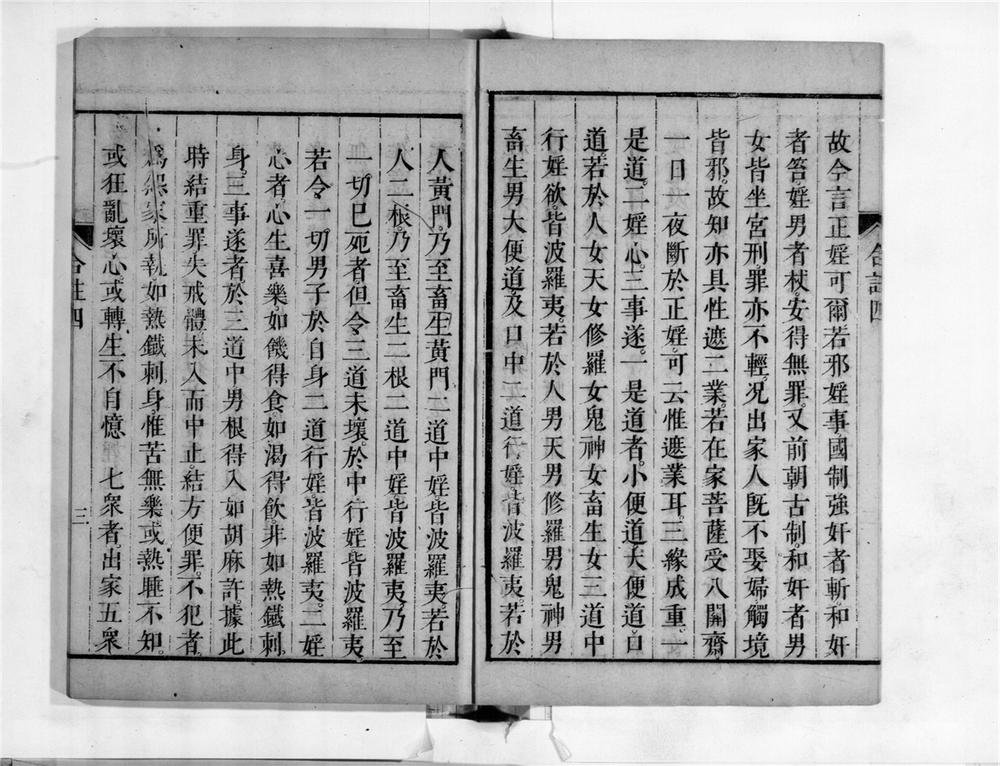 故今言正婬可爾若邪婬事國制強奸者斬和奸
者笞婬男者杖安得無罪又前朝古制和奸者男
女皆坐宮刑罪亦不輕況出家人旣不娶婦觸境
皆邪故知亦具性遮二業若在家菩薩受八關齋
一日一夜斷於正婬可云惟遮業耳三緣成重一
是道二婬心三事遂一是道者小便道大便道口
道若於人女天女修羅女鬼神女畜生女三道中
行婬欲皆波羅夷若於人男天男修羅男鬼神男
畜生男大便道及口中二道行婬皆波羅夷若於
合註四
人黃門乃至畜生黃門二道中婬皆波羅夷若於
人二根乃至畜生二根二道中婬皆波羅夷乃至
一切已死者但令三道未壞於中行婬皆波羅夷
若令一切男子於自身二道行婬皆波羅夷二婬
心者心生喜樂如饑得食如渴得飲非如熱鐵刺
身三事遂者於三道中男根得入如胡麻許據此
時結重罪失戒體未入而中止結方便罪不犯者
爲怨家所執如熱鐵刺身惟苦無樂或熟睡不知
或狂亂壞心或轉生不自憶 七衆者出家五衆
合註四
三